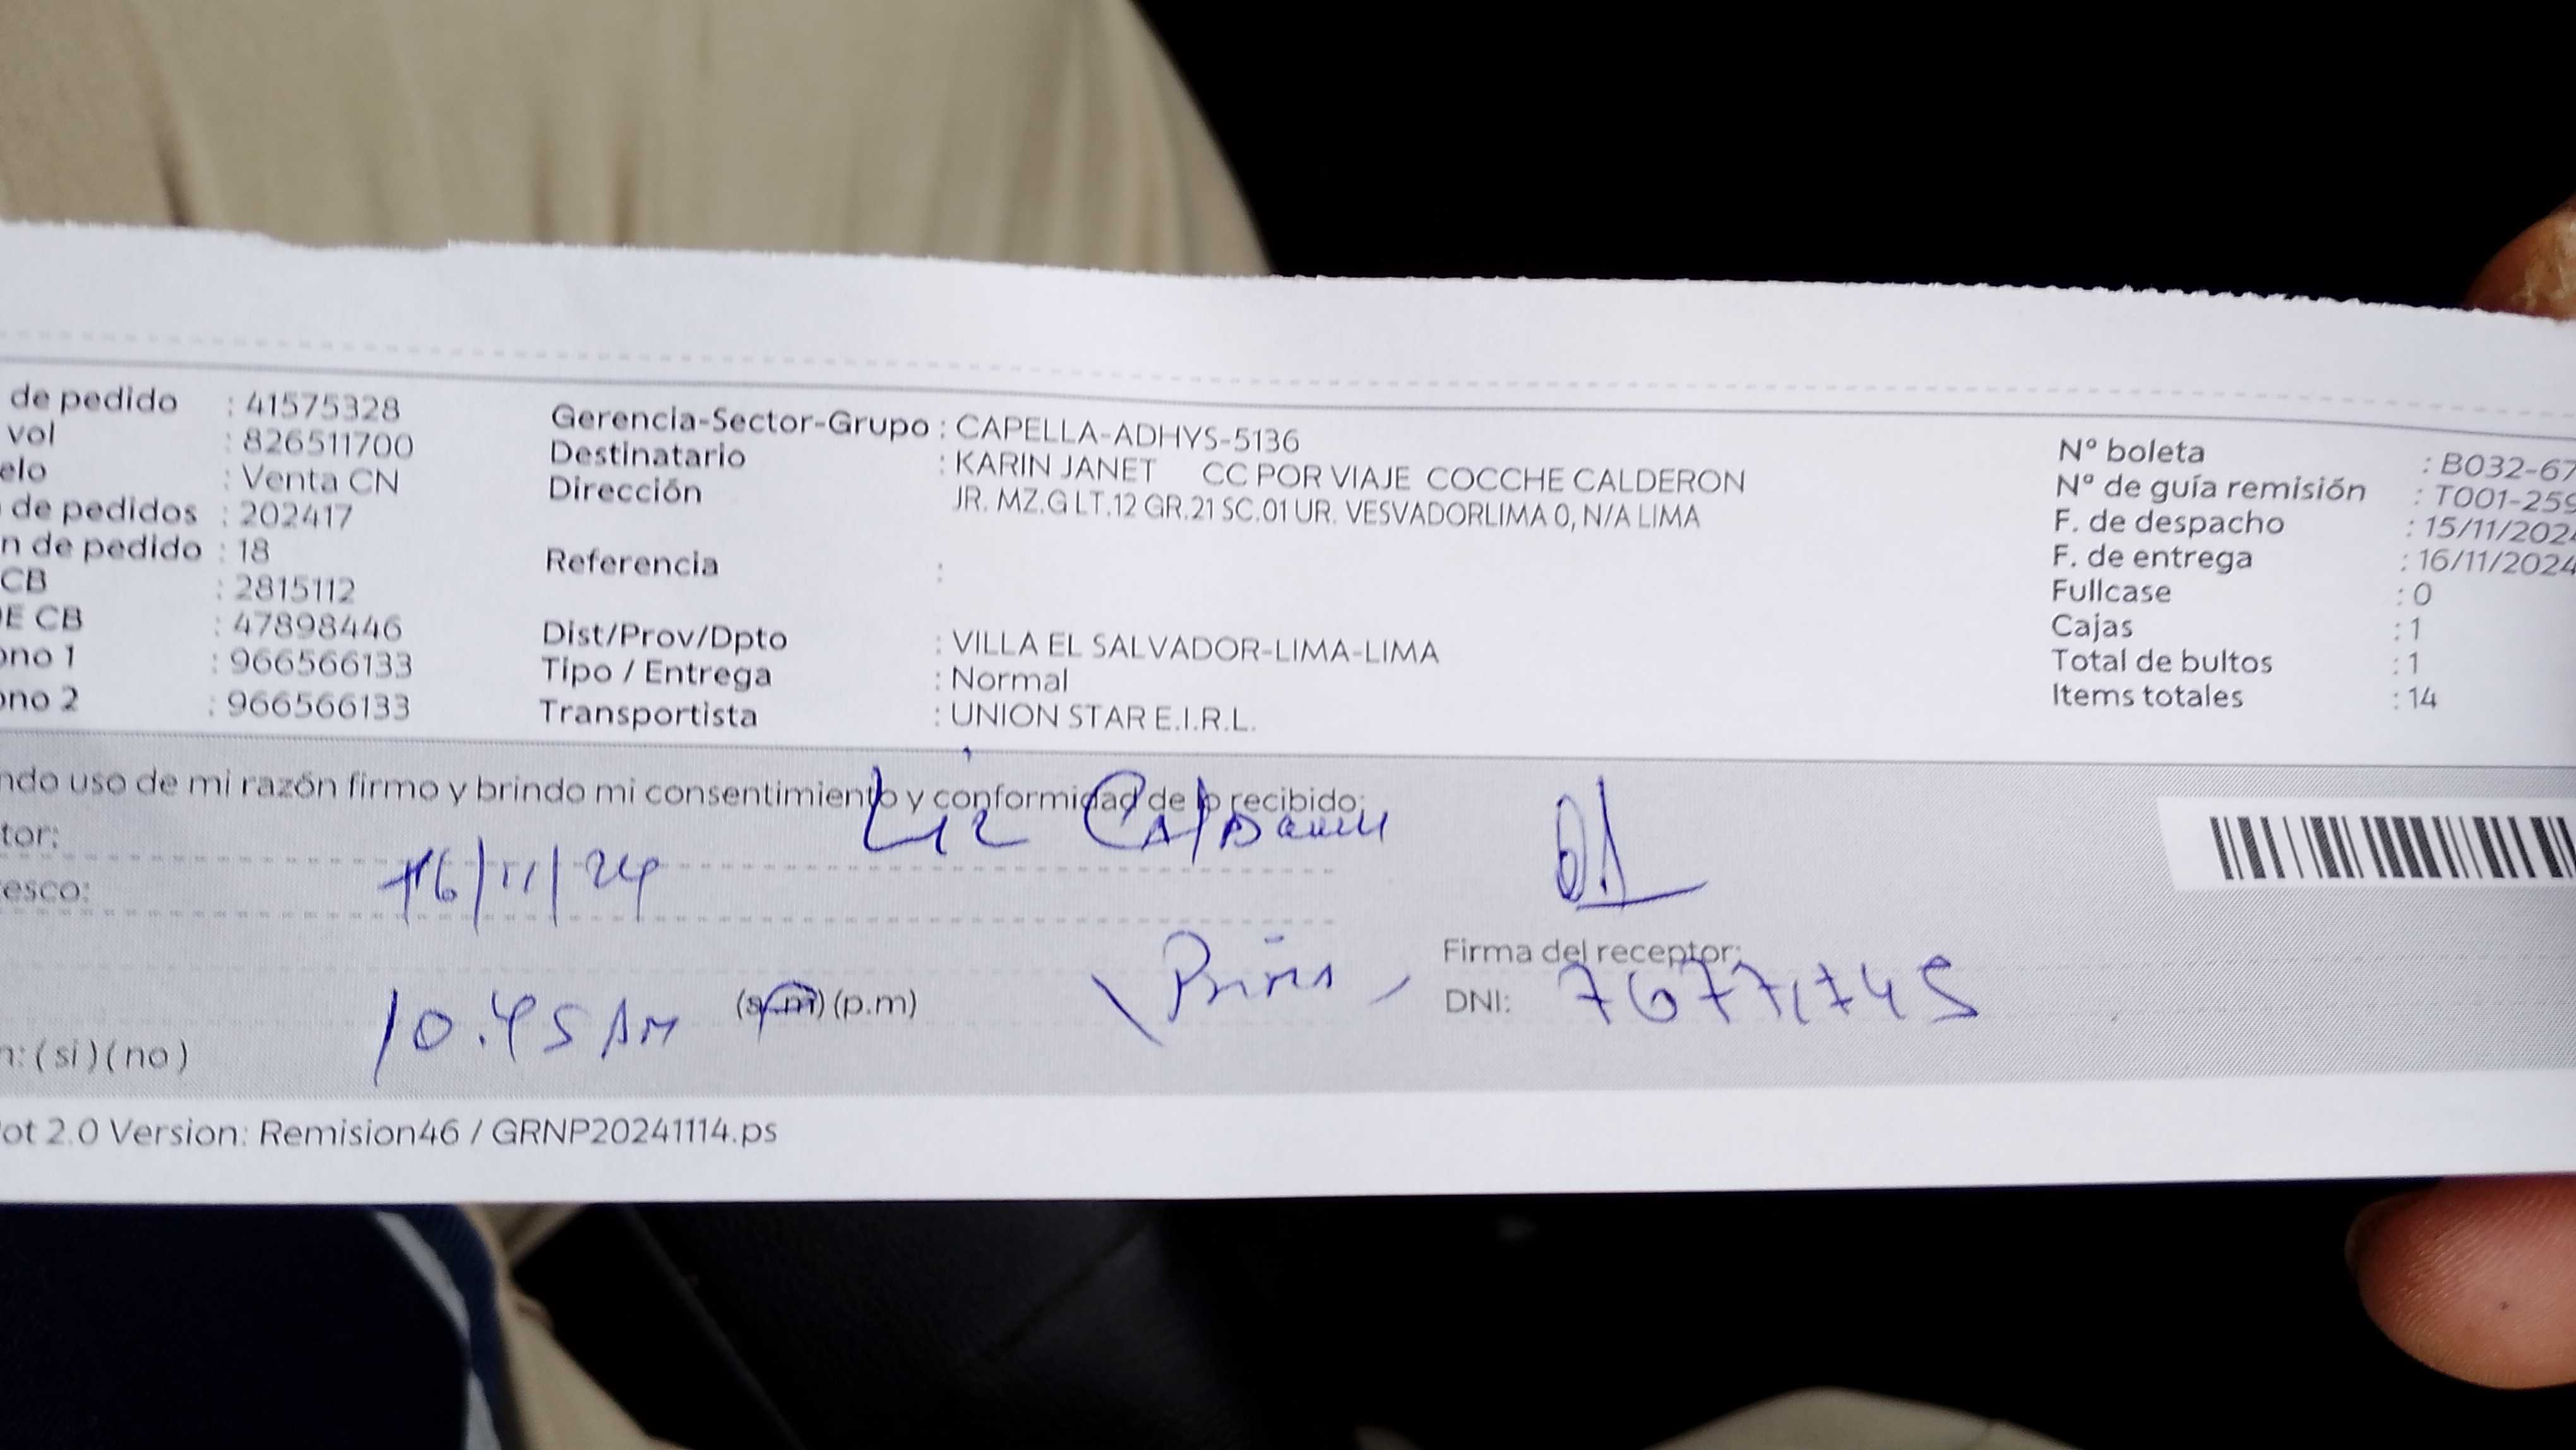 de pedido : 41575328
vol : 826511700
elo : Venta CN
de pedidos : 202417
n de pedido : 18
CB : 2815112
E CB : 47898446
ono 1 : 966566133
ono 2 : 966566133
Gerencia-Sector-Grupo : CAPELLA-ADHYS-5136
Destinatario : KARIN JANET CC POR VIAJE COCCHE CALDERON
Dirección JR. MZ.G LT.12 GR.21 SC.01 UR. VESVADORLIMA 0, N/A LIMA
Referencia :
Dist/Prov/Dpto : VILLA EL SALVADOR-LIMA-LIMA
Tipo / Entrega : Normal
Transportista : UNION STAR E.I.R.L.
N° boleta : B032-67
N° de guía remisión : T001-259
F. de despacho : 15/11/2024
F. de entrega : 16/11/2024
Fullcase : 0
Cajas : 1
Total de bultos : 1
Items totales : 14
ndo uso de mi razón firmo y brindo mi consentimiento y conformidad de lo recibido:
tor: Liz
esco: 16/11/24
01
Firma del receptor:
10.45 AM (a.m) (p.m)
DNI:
n: (si) (no)
ot 2.0 Version: Remision46 / GRNP20241114.ps